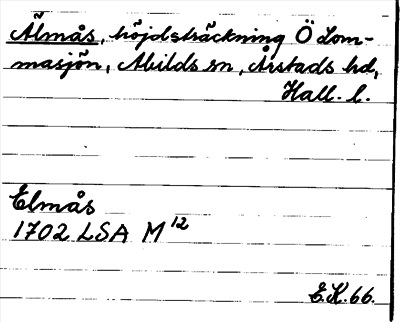 Älmås, höjdsträckning Ö Lom-
masjön, Abilds sn, Årstads hd,
Hall. l.
Elmås
1702 LSA M12
E.K. 66.